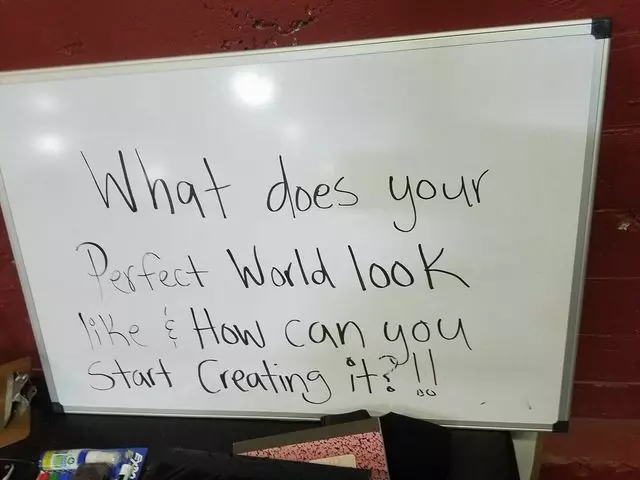 What does your
Perfect World look
like & How can you
Start Creating it?!!